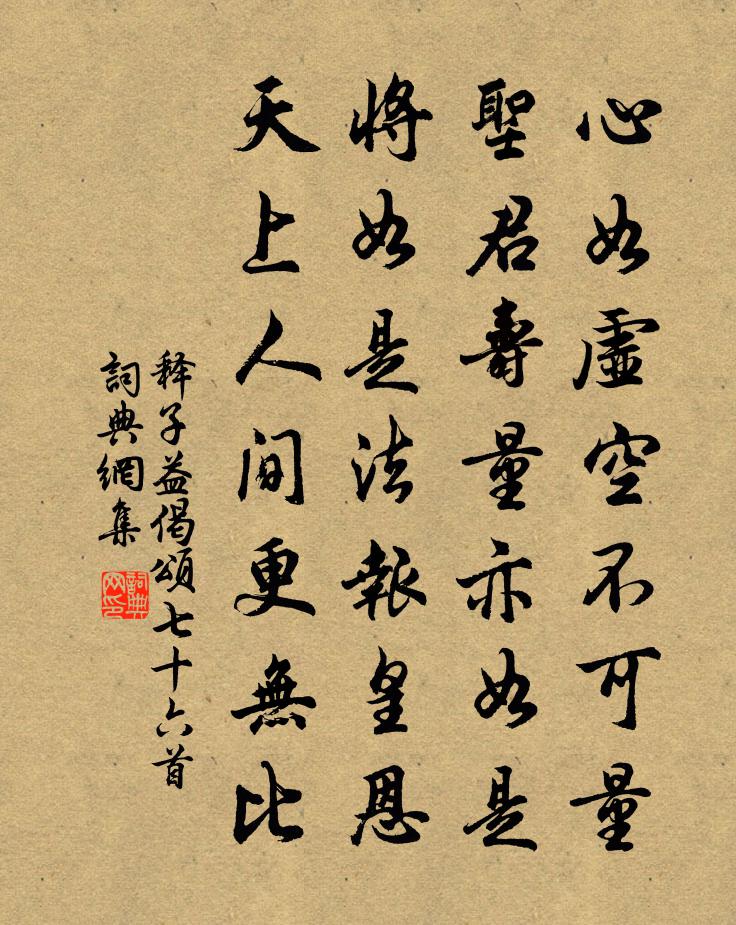 心如虛空不可量
聖君壽量亦如是
將如是法報皇恩
天上人間更無比
释子益偈頌七十六首
詞典網集
詞典網印